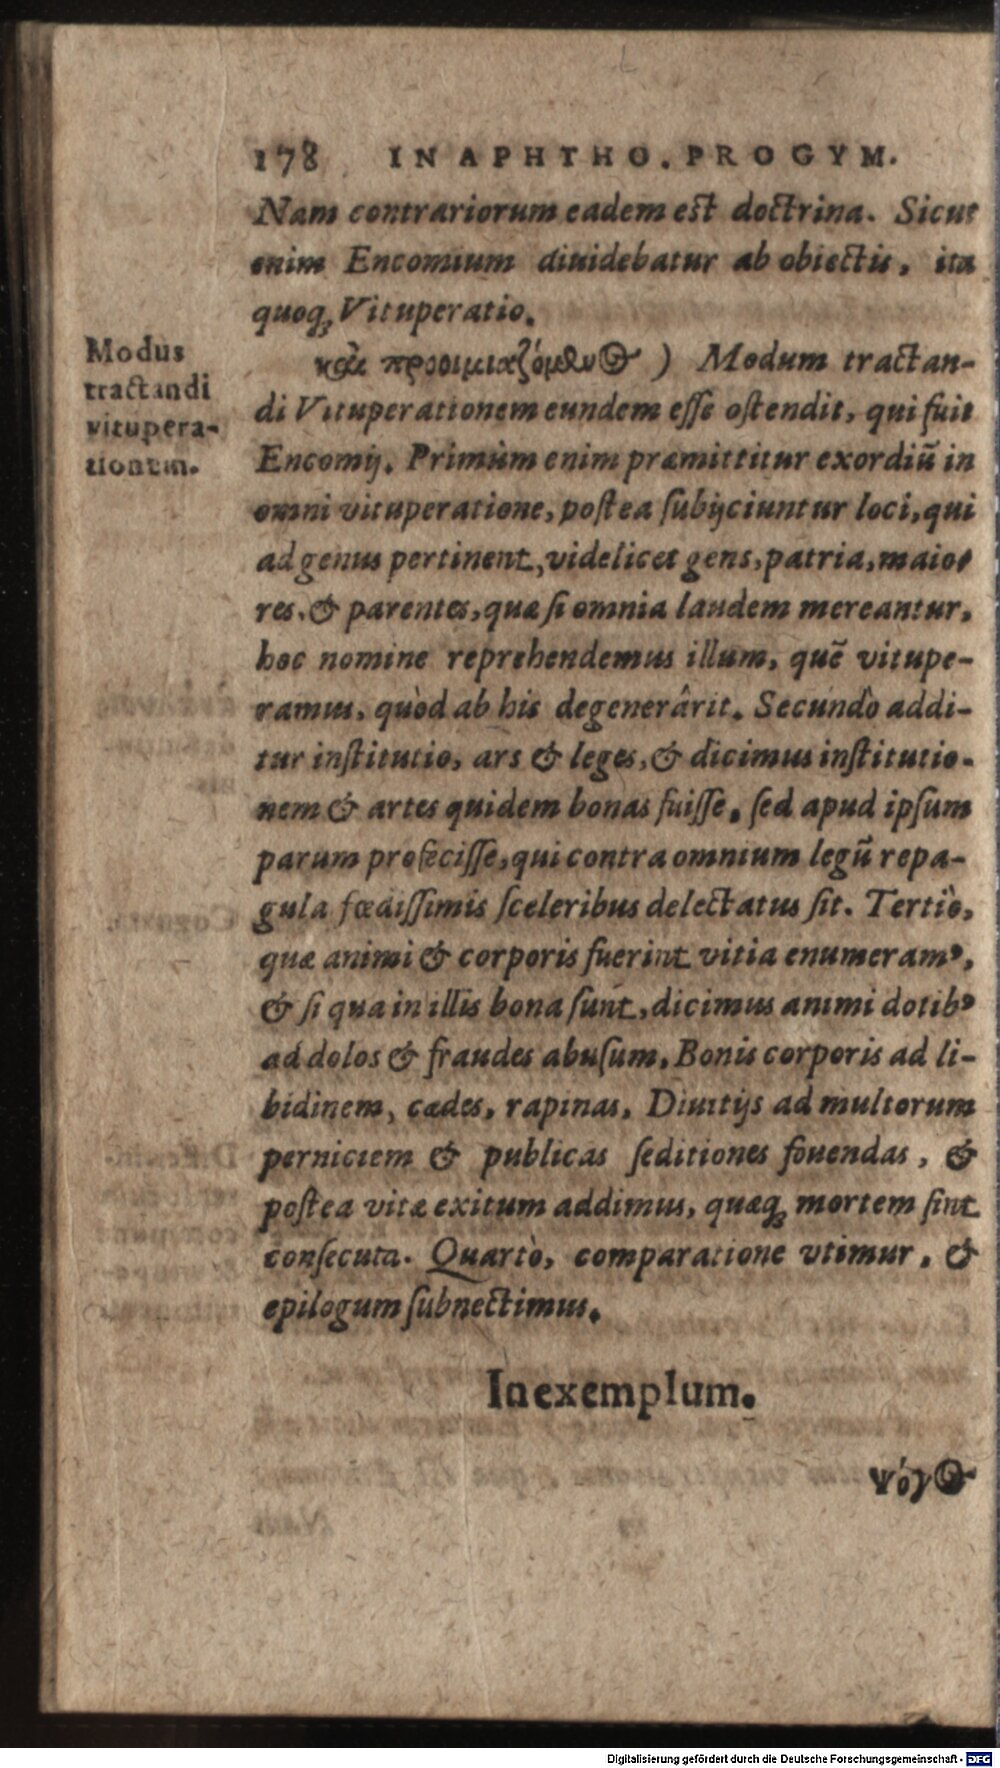 178 IN APHTHO. PROGYM.
Nam contrariorum eadem est doctrina. Sicut
enim Encomium diuidebatur ab obiectis, ita
quoq; Vituperatio.
Modus
tractandi
vitupera-
tionem.
καὶ προοιμιαζόμενος ) Modum tractan-
di Vituperationem eundem eſſe oſtendit, qui fuit
Encomij. Primùm enim præmittitur exordiũ in
omni vituperatione, poſtea ſubijciuntur loci, qui
ad genus pertinent, videlicet gens, patria, maio-
res, & parentes, quæ ſi omnia laudem mereantur,
hoc nomine reprehendemus illum, quẽ vitupe-
ramus, quòd ab his degenerârit. Secundò addi-
tur inſtitutio, ars & leges, & dicimus inſtitutio-
nem & artes quidem bonas fuiſſe, ſed apud ipſum
parum profeciſſe, qui contra omnium legũ repa-
gula fœdiſſimis ſceleribus delectatus ſit. Tertiò,
quæ animi & corporis fuerint vitia enumeramꝰ,
& ſi qua in illis bona ſunt, dicimus animi dotibꝰ
ad dolos & fraudes abuſum, Bonis corporis ad li-
bidinem, cædes, rapinas, Diuitijs ad multorum
perniciem & publicas ſeditiones fouendas, &
poſtea vitæ exitum addimus, quæq; mortem ſint
conſecuta. Quartò, comparatione vtimur, &
epilogum ſubnectimus.
In exemplum.
ψόγος
Digitalisierung gefördert durch die Deutsche Forschungsgemeinschaft - DFG